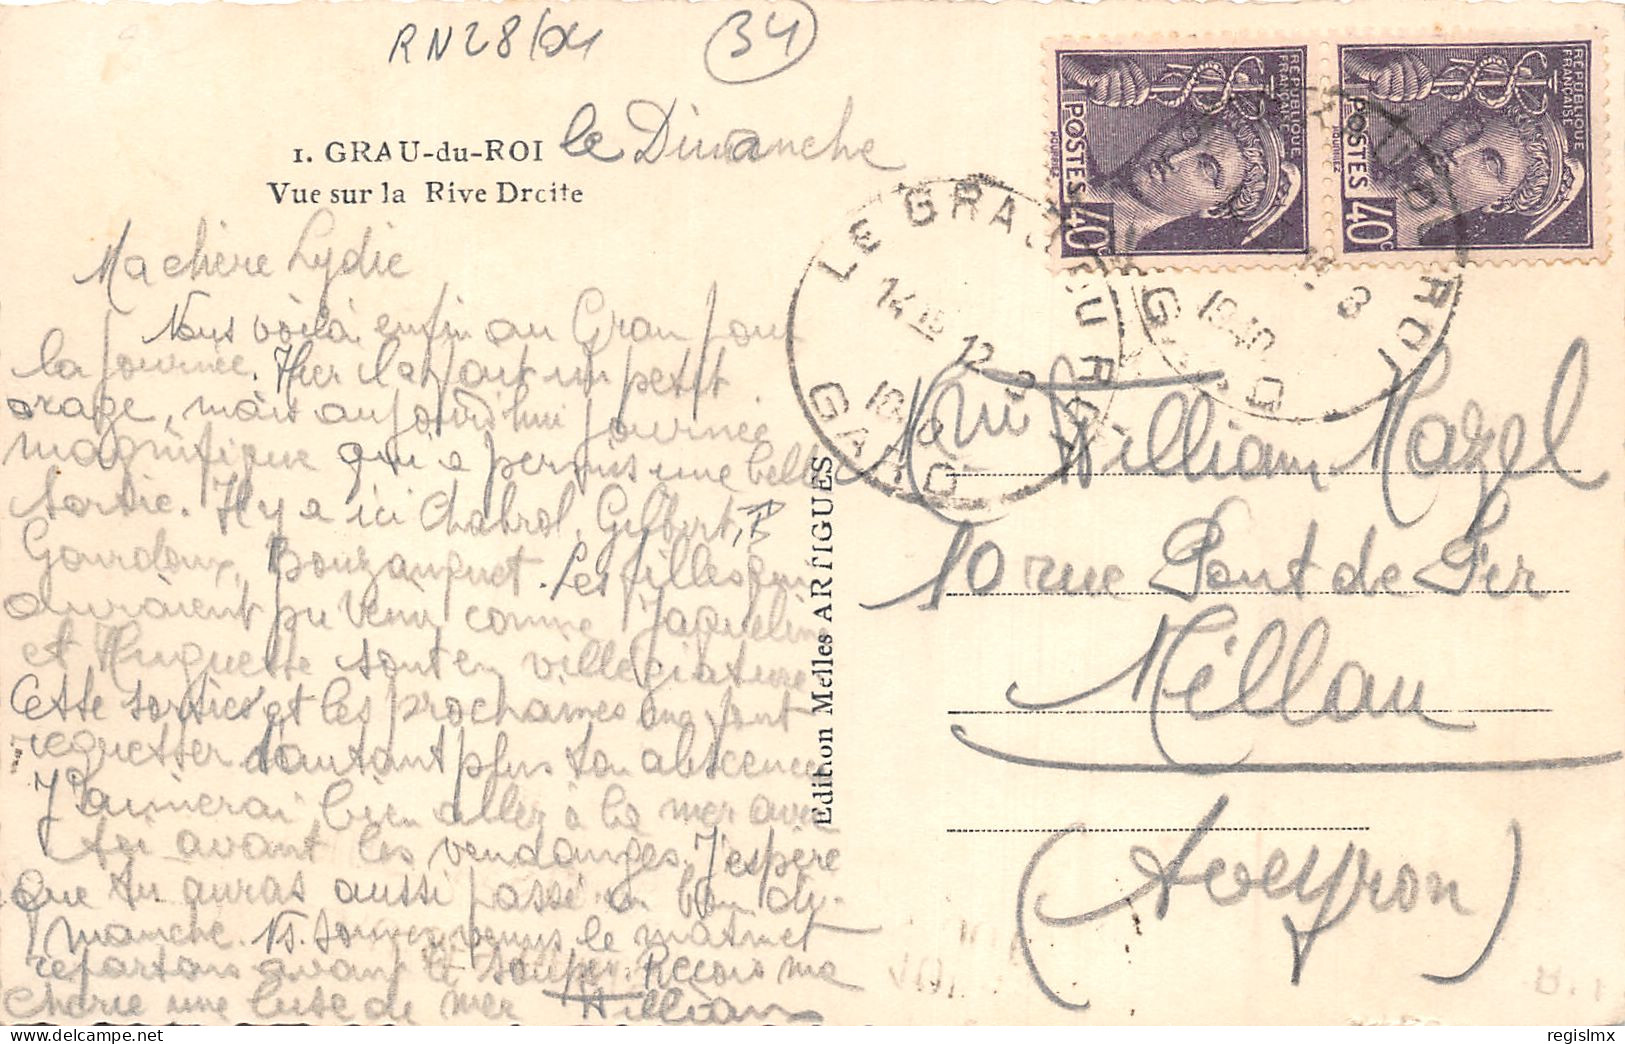 RN28/04
34
1. GRAU-du-ROI
le Dimanche
Vue sur la Rive Droite
Ma chère Lydie
Nous voilà enfin au Grau pour
la journée. Hier il a fait un petit
orage, mais aujourd'hui journée
magnifique qui a permis une belle
sortie. Il y a ici Chabrol, Gilbert,
Gourdoux, Bouzanquet. Les filles qui
auraient pu venir comme Jaqueline
et Huguette sont en villégiature
Cette sorties et les prochaines me font
regretter d'autant plus ton abscence
J'aimerai bien aller à la mer avec
toi avant les vendanges. J'espère
que tu auras aussi passé un bon di-
manche. Ns. sommes venus le matin et
repartons avant le souper. Reçois ma
cherie une bise de mer William
Edition Melles ARTIGUES
RÉPUBLIQUE FRANÇAISE
POSTES 40c
RÉPUBLIQUE FRANÇAISE
POSTES 40c
LE GRAU DU ROI
14 15
12 8
1940
GARD
LE GRAU DU ROI
8
1940
GARD
William Mazel
10 rue Pont de Fer
Millau
(Aveyron)
delcampe.net
regislmx